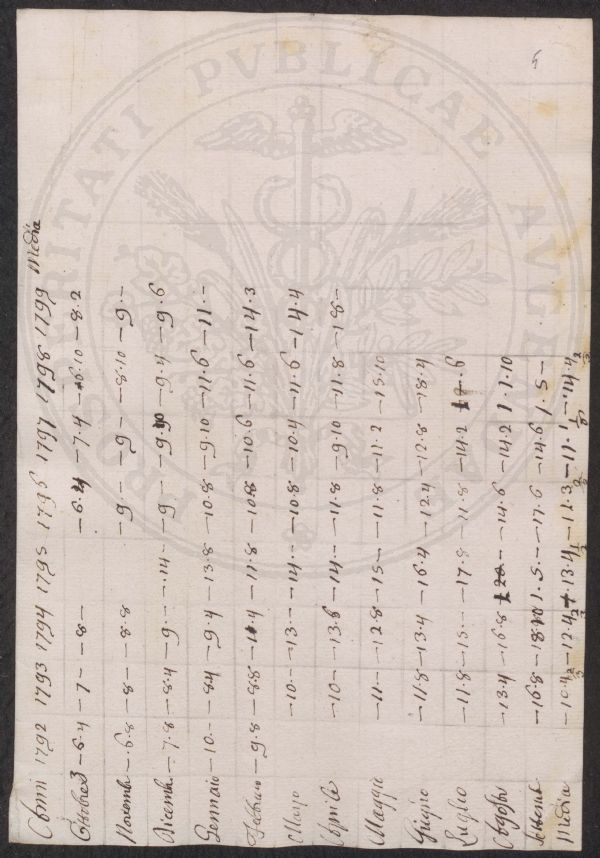 5
Anni 1792 1793 1794 1795 1796 1797 1798 1799 Media
Ottobre - 6.4 - 7 - - 8 - - 6.4 - 7.4 - 6.10 - 8.2
Novemb. - 6.8 - 8 - - 8.8 - 9. - - 9 - - 8.10 - 9. -
Dicemb. - 7.8 - 8.4 - 9. - - 14. - - 9 - - 9.4 - 9.6
Gennaio - 10. - - 8.4 - 9.4 - 13.8 - 10.8 - 9.10 - 11.6 - 11. -
Febbraio - 9.8 - 8.8 - 11.4 - 11.8 - 10.8 - 10.6 - 11.6 - 14.3
Marzo - 10. - - 13. - - 14. - - 10.8 - 10.4 - 11.6 - 14.4
Aprile - 10. - - 13.6 - 14. - - 11.8 - 9.10 - 11.8 - 18 -
Maggio - 11. - - 12.8 - 15 - - 11.8 - 11.2 - 15.10
Giugno - 11.8 - 13.4 - 16.4 - 12.4 - 12.8 - 18.4
Luglio - 11.8 - 15. - - 17.8 - 11.8 - 14.2
Agosto - 13.4 - 16.8 - 14.6 - 14.2 1.1.10
Settemb. - 16.8 - 18. 1.5. - - 17.6 - 14.6 1.5 -
Media - 10.4 2/3 - 12.4 2/3 - 13.4 1/2 - 12.3 - 11.1 - 14.4 2/3
PROSPERITATI PVBLICAE AVGENDAE